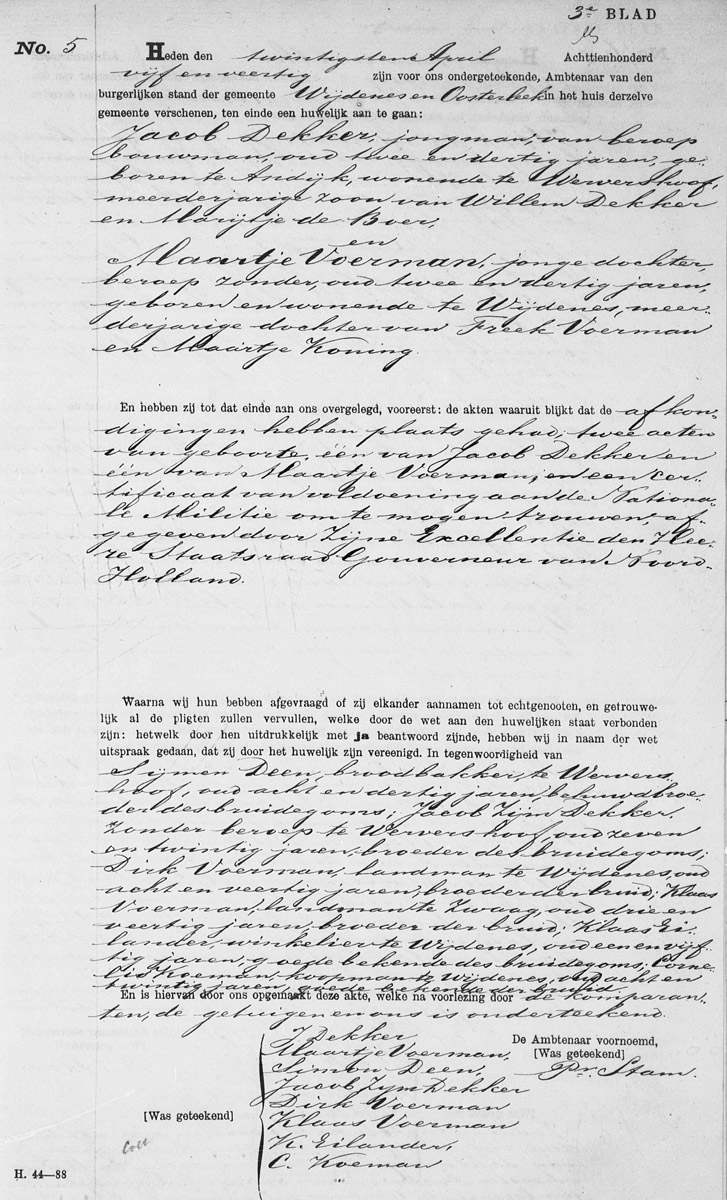 3e BLAD
No. 5 Heden den twintigsten April Achttienhonderd
vijf en veertig zijn voor ons ondergeteekende, Ambtenaar van den
burgerlijken stand der gemeente Wijdenes en Oosterleek in het huis derzelve
gemeente verschenen, ten einde een huwelijk aan te gaan:
Jacob Dekker, jongman, van beroep
bouwman, oud twee en dertig jaren, ge-
boren te Andijk, wonende te Wervershoof,
meerderjarige zoon van Willem Dekker
en Marijtje de Boer,
en
Maartje Voerman, jonge dochter,
beroep zonder, oud twee en dertig jaren,
geboren en wonende te Wijdenes, meer-
derjarige dochter van Freek Voerman
en Maartje Koning.
En hebben zij tot dat einde aan ons overgelegd, vooreerst: de akten waaruit blijkt dat de afkon-
digingen hebben plaats gehad; twee acten
van geboorte, één van Jacob Dekker en
één van Maartje Voerman; en een cer-
tificaat van voldoening aan de Nationa-
le Militie om te mogen trouwen, af-
gegeven door Zijne Excellentie den Hee-
re Staatsraad Gouverneur van Noord-
Holland.
Waarna wij hun hebben afgevraagd of zij elkander aannamen tot echtgenooten, en getrouwe-
lijk al de pligten zullen vervullen, welke door de wet aan den huwelijken staat verbonden
zijn: hetwelk door hen uitdrukkelijk met ja beantwoord zijnde, hebben wij in naam der wet
uitspraak gedaan, dat zij door het huwelijk zijn vereenigd. In tegenwoordigheid van
Sijmen Deen, broodbakker, te Wervers-
hoof, oud acht en dertig jaren, behuwdbroe-
der des bruidegoms; Jacob Zijm Dekker,
zonder beroep te Wervershoof, oud zeven
en twintig jaren, broeder des bruidegoms;
Dirk Voerman, landman te Wijdenes, oud
acht en veertig jaren, broeder der bruid; Klaas
Voerman, landman te Zwaag, oud drie en
veertig jaren, broeder der bruid; Klaas Ei-
lander, winkelier te Wijdenes, oud een en vijf-
tig jaren, goede bekende des bruidegoms; Corne-
lis Koeman, koopman te Wijdenes, oud acht en
twintig jaren, goede bekende der bruid.
En is hiervan door ons opgemaakt deze akte, welke na voorlezing door de komparan-
ten, de getuigen en ons is onderteekend.
J Dekker
Maartje Voerman,
Simon Deen,
Jacob Zijm Dekker
Dirk Voerman
Klaas Voerman
K. Eilander,
C. Koeman
[Was geteekend]
De Ambtenaar voornoemd,
[Was geteekend]
Pr. Stam.
H. 44—88